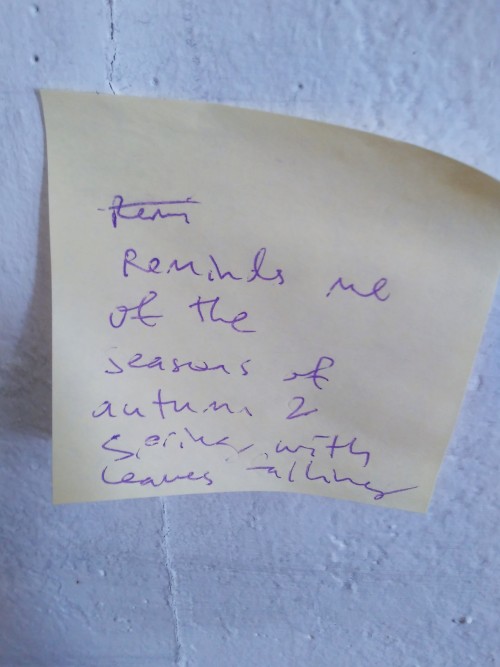 Remi
Reminds me
of the
seasons of
autumn 2
Spring with
leaves falling